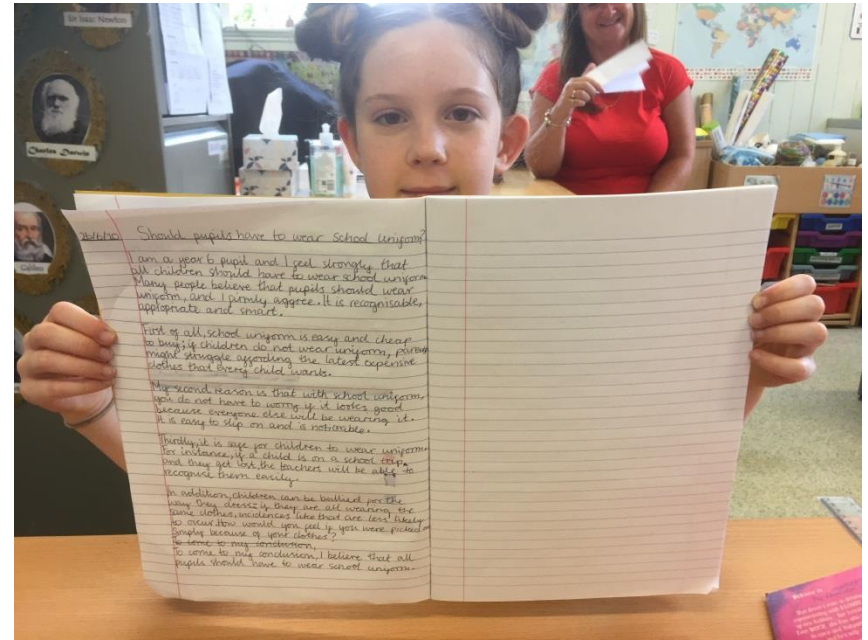 Sir Isaac Newton
Charles Darwin
Galileo
Should pupils have to wear school uniform?
I am a year 6 pupil and I feel strongly that
all children should have to wear school uniform.
Many people believe that pupils should wear
uniform, and I firmly aggree. It is recognisable,
appropriate and smart.
First of all, school uniform is easy and cheap
to buy; if children do not wear uniform, parents
might struggle affording the latest expensive
clothes that every child wants.
My second reason is that with school uniform,
you do not have to worry if it looks good
because everyone else will be wearing it.
It is easy to slip on and is noticeable.
Thirdly, it is safe for children to wear uniform.
For instance, if a child is on a school trip,
and they get lost, the teachers will be able to
recognise them easily.
In addition, children can be bullied for the
way they dress; if they are all wearing the
same clothes, incidences like that are less likely
to occur. How would you feel if you were picked on
simply because of your clothes?
To come to my conclusion,
To come to my conclusion, I believe that all
pupils should have to wear school uniform.
Welcome to